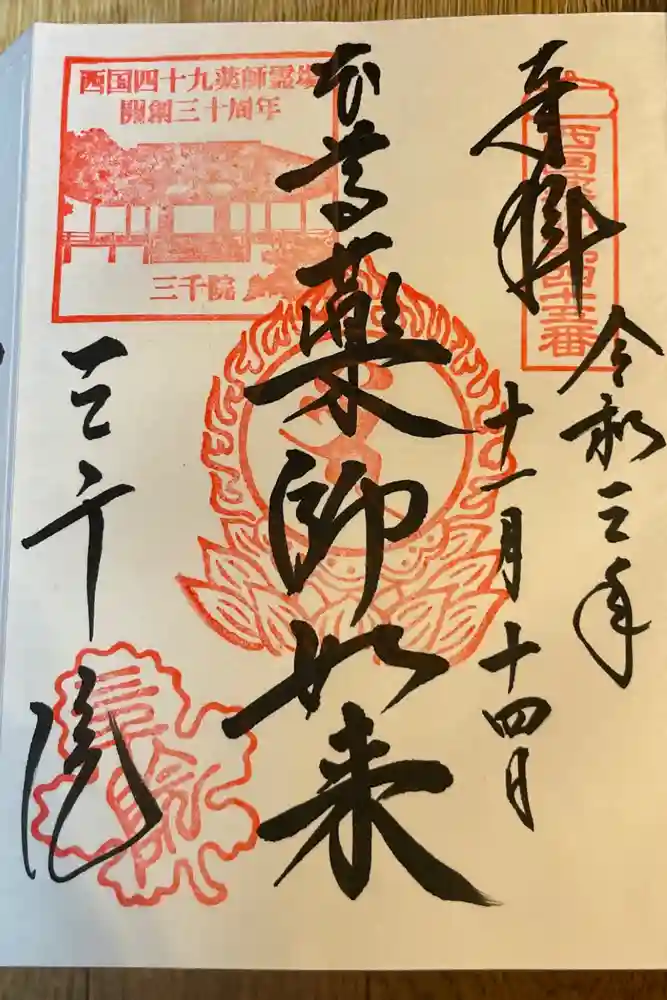 奉拝
西国薬師第四十五番
令和三年
十一月十四日
本尊
薬師如来
西国四十九薬師霊場
開創三十周年
三千院
三千院